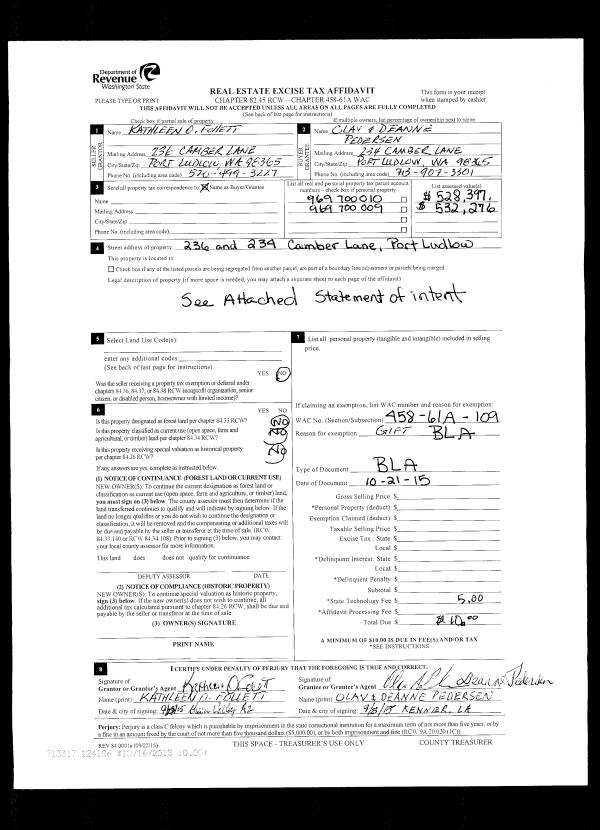 Department of
Revenue
Washington State
PLEASE TYPE OR PRINT
REAL ESTATE EXCISE TAX AFFIDAVIT
CHAPTER 82.45 RCW – CHAPTER 458-61A WAC
This form is your receipt
when stamped by cashier.
THIS AFFIDAVIT WILL NOT BE ACCEPTED UNLESS ALL AREAS ON ALL PAGES ARE FULLY COMPLETED
(See back of last page for instructions)
Check box if partial sale of property
If multiple owners, list percentage of ownership next to name
1 Name KATHLEEN D. FOLLETT
SELLER GRANTOR
Mailing Address 236 CAMBER LANE
City/State/Zip PORT LUDLOW, WA 98365
Phone No. (including area code) 520-499-3227
2 Name OLAV & DEANNE
PEDERSEN
BUYER GRANTEE
Mailing Address 234 CAMBER LANE
City/State/Zip PORT LUDLOW, WA 98365
Phone No. (including area code) 713-907-3301
3 Send all property tax correspondence to: Same as Buyer/Grantee
Name
Mailing Address
City/State/Zip
Phone No. (including area code)
List all real and personal property tax parcel account
numbers – check box if personal property
969 700 010
969 700 009
List assessed value(s)
$ 528,397.
$ 532,276
4 Street address of property: 236 and 234 Camber Lane, Port Ludlow
This property is located in
Check box if any of the listed parcels are being segregated from another parcel, are part of a boundary line adjustment or parcels being merged.
Legal description of property (if more space is needed, you may attach a separate sheet to each page of the affidavit)
See Attached Statement of intent
5 Select Land Use Code(s):
enter any additional codes:
(See back of last page for instructions)
YES NO
Was the seller receiving a property tax exemption or deferral under
chapters 84.36, 84.37, or 84.38 RCW (nonprofit organization, senior
citizen, or disabled person, homeowner with limited income)?
6 YES NO
Is this property designated as forest land per chapter 84.33 RCW?
Is this property classified as current use (open space, farm and
agricultural, or timber) land per chapter 84.34 RCW?
Is this property receiving special valuation as historical property
per chapter 84.26 RCW?
If any answers are yes, complete as instructed below.
(1) NOTICE OF CONTINUANCE (FOREST LAND OR CURRENT USE)
NEW OWNER(S): To continue the current designation as forest land or
classification as current use (open space, farm and agriculture, or timber) land,
you must sign on (3) below. The county assessor must then determine if the
land transferred continues to qualify and will indicate by signing below. If the
land no longer qualifies or you do not wish to continue the designation or
classification, it will be removed and the compensating or additional taxes will
be due and payable by the seller or transferor at the time of sale. (RCW
84.33.140 or RCW 84.34.108). Prior to signing (3) below, you may contact
your local county assessor for more information.
This land does does not qualify for continuance.
DEPUTY ASSESSOR DATE
(2) NOTICE OF COMPLIANCE (HISTORIC PROPERTY)
NEW OWNER(S): To continue special valuation as historic property,
sign (3) below. If the new owner(s) does not wish to continue, all
additional tax calculated pursuant to chapter 84.26 RCW, shall be due and
payable by the seller or transferor at the time of sale.
(3) OWNER(S) SIGNATURE
PRINT NAME
7 List all personal property (tangible and intangible) included in selling
price.
If claiming an exemption, list WAC number and reason for exemption:
WAC No. (Section/Subsection) 458-61A-109
Reason for exemption GIFT BLA
Type of Document BLA
Date of Document 10-21-15
Gross Selling Price $
*Personal Property (deduct) $
Exemption Claimed (deduct) $
Taxable Selling Price $
Excise Tax : State $
Local $
*Delinquent Interest: State $
Local $
*Delinquent Penalty $
Subtotal $
*State Technology Fee $ 5.00
*Affidavit Processing Fee $
Total Due $ 10.00
A MINIMUM OF $10.00 IS DUE IN FEE(S) AND/OR TAX
*SEE INSTRUCTIONS
8 I CERTIFY UNDER PENALTY OF PERJURY THAT THE FOREGOING IS TRUE AND CORRECT.
Signature of
Grantor or Grantor's Agent Kathleen D Follett
Name (print) KATHLEEN D. FOLLETT
Date & city of signing:
Signature of
Grantee or Grantee's Agent Deanne Pedersen
Name (print) OLAV & DEANNE PEDERSEN
Date & city of signing: KENNER, LA
Perjury: Perjury is a class C felony which is punishable by imprisonment in the state correctional institution for a maximum term of not more than five years, or by
a fine in an amount fixed by the court of not more than five thousand dollars ($5,000.00), or by both imprisonment and fine (RCW 9A.20.020 (1C)).
REV 84 0001a (09/22/15)
THIS SPACE - TREASURER'S USE ONLY
COUNTY TREASURER
713317 124196 #10/16/2015 10.00#